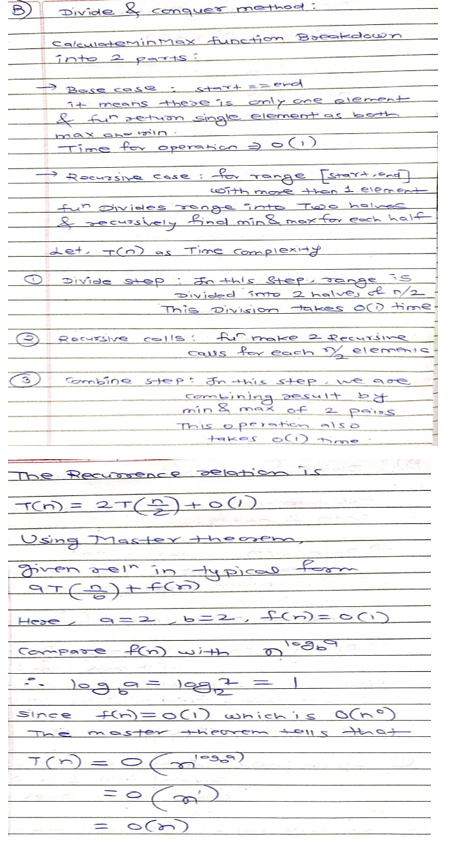 B) Divide & conquer method :
CalculateMinMax function Breakdown
into 2 parts :
→ Base case : start == end
it means there is only one element
& fun return single element as both
max and min.
Time for operation ⇒ O(1)
→ Recursive case : for range [start, end]
with more than 1 element
fun Divides range into Two halves
& recursively find min & max for each half
Let, T(n) as Time complexity
① Divide step : In this step, range is
Divided into 2 halves, of n/2
This Division takes O(1) time
② Recursive calls : fun make 2 Recursive
calls for each n/2 elements
③ Combine step : In this step, we are
combining result by
min & max of 2 pairs
This operation also
takes O(1) time.
The Recurrence relation is
T(n) = 2T(n/2) + O(1)
Using Master theorem,
given reln in typical form
aT(n/b) + f(n)
Here, a=2, b=2, f(n)=O(1)
Compare f(n) with n^log_b a
∴ log_b a = log_2 2 = 1
Since f(n)=O(1) which is O(n⁰)
The master theorem tells that
T(n) = O(n^log_b a)
= O(n¹)
= O(n)